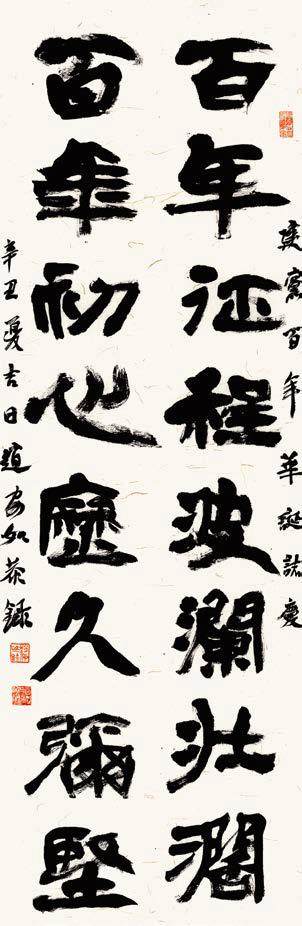 建黨百年華誕誌慶
百年征程波瀾壯闊
百年初心歷久彌堅
辛丑夏吉日如恭錄